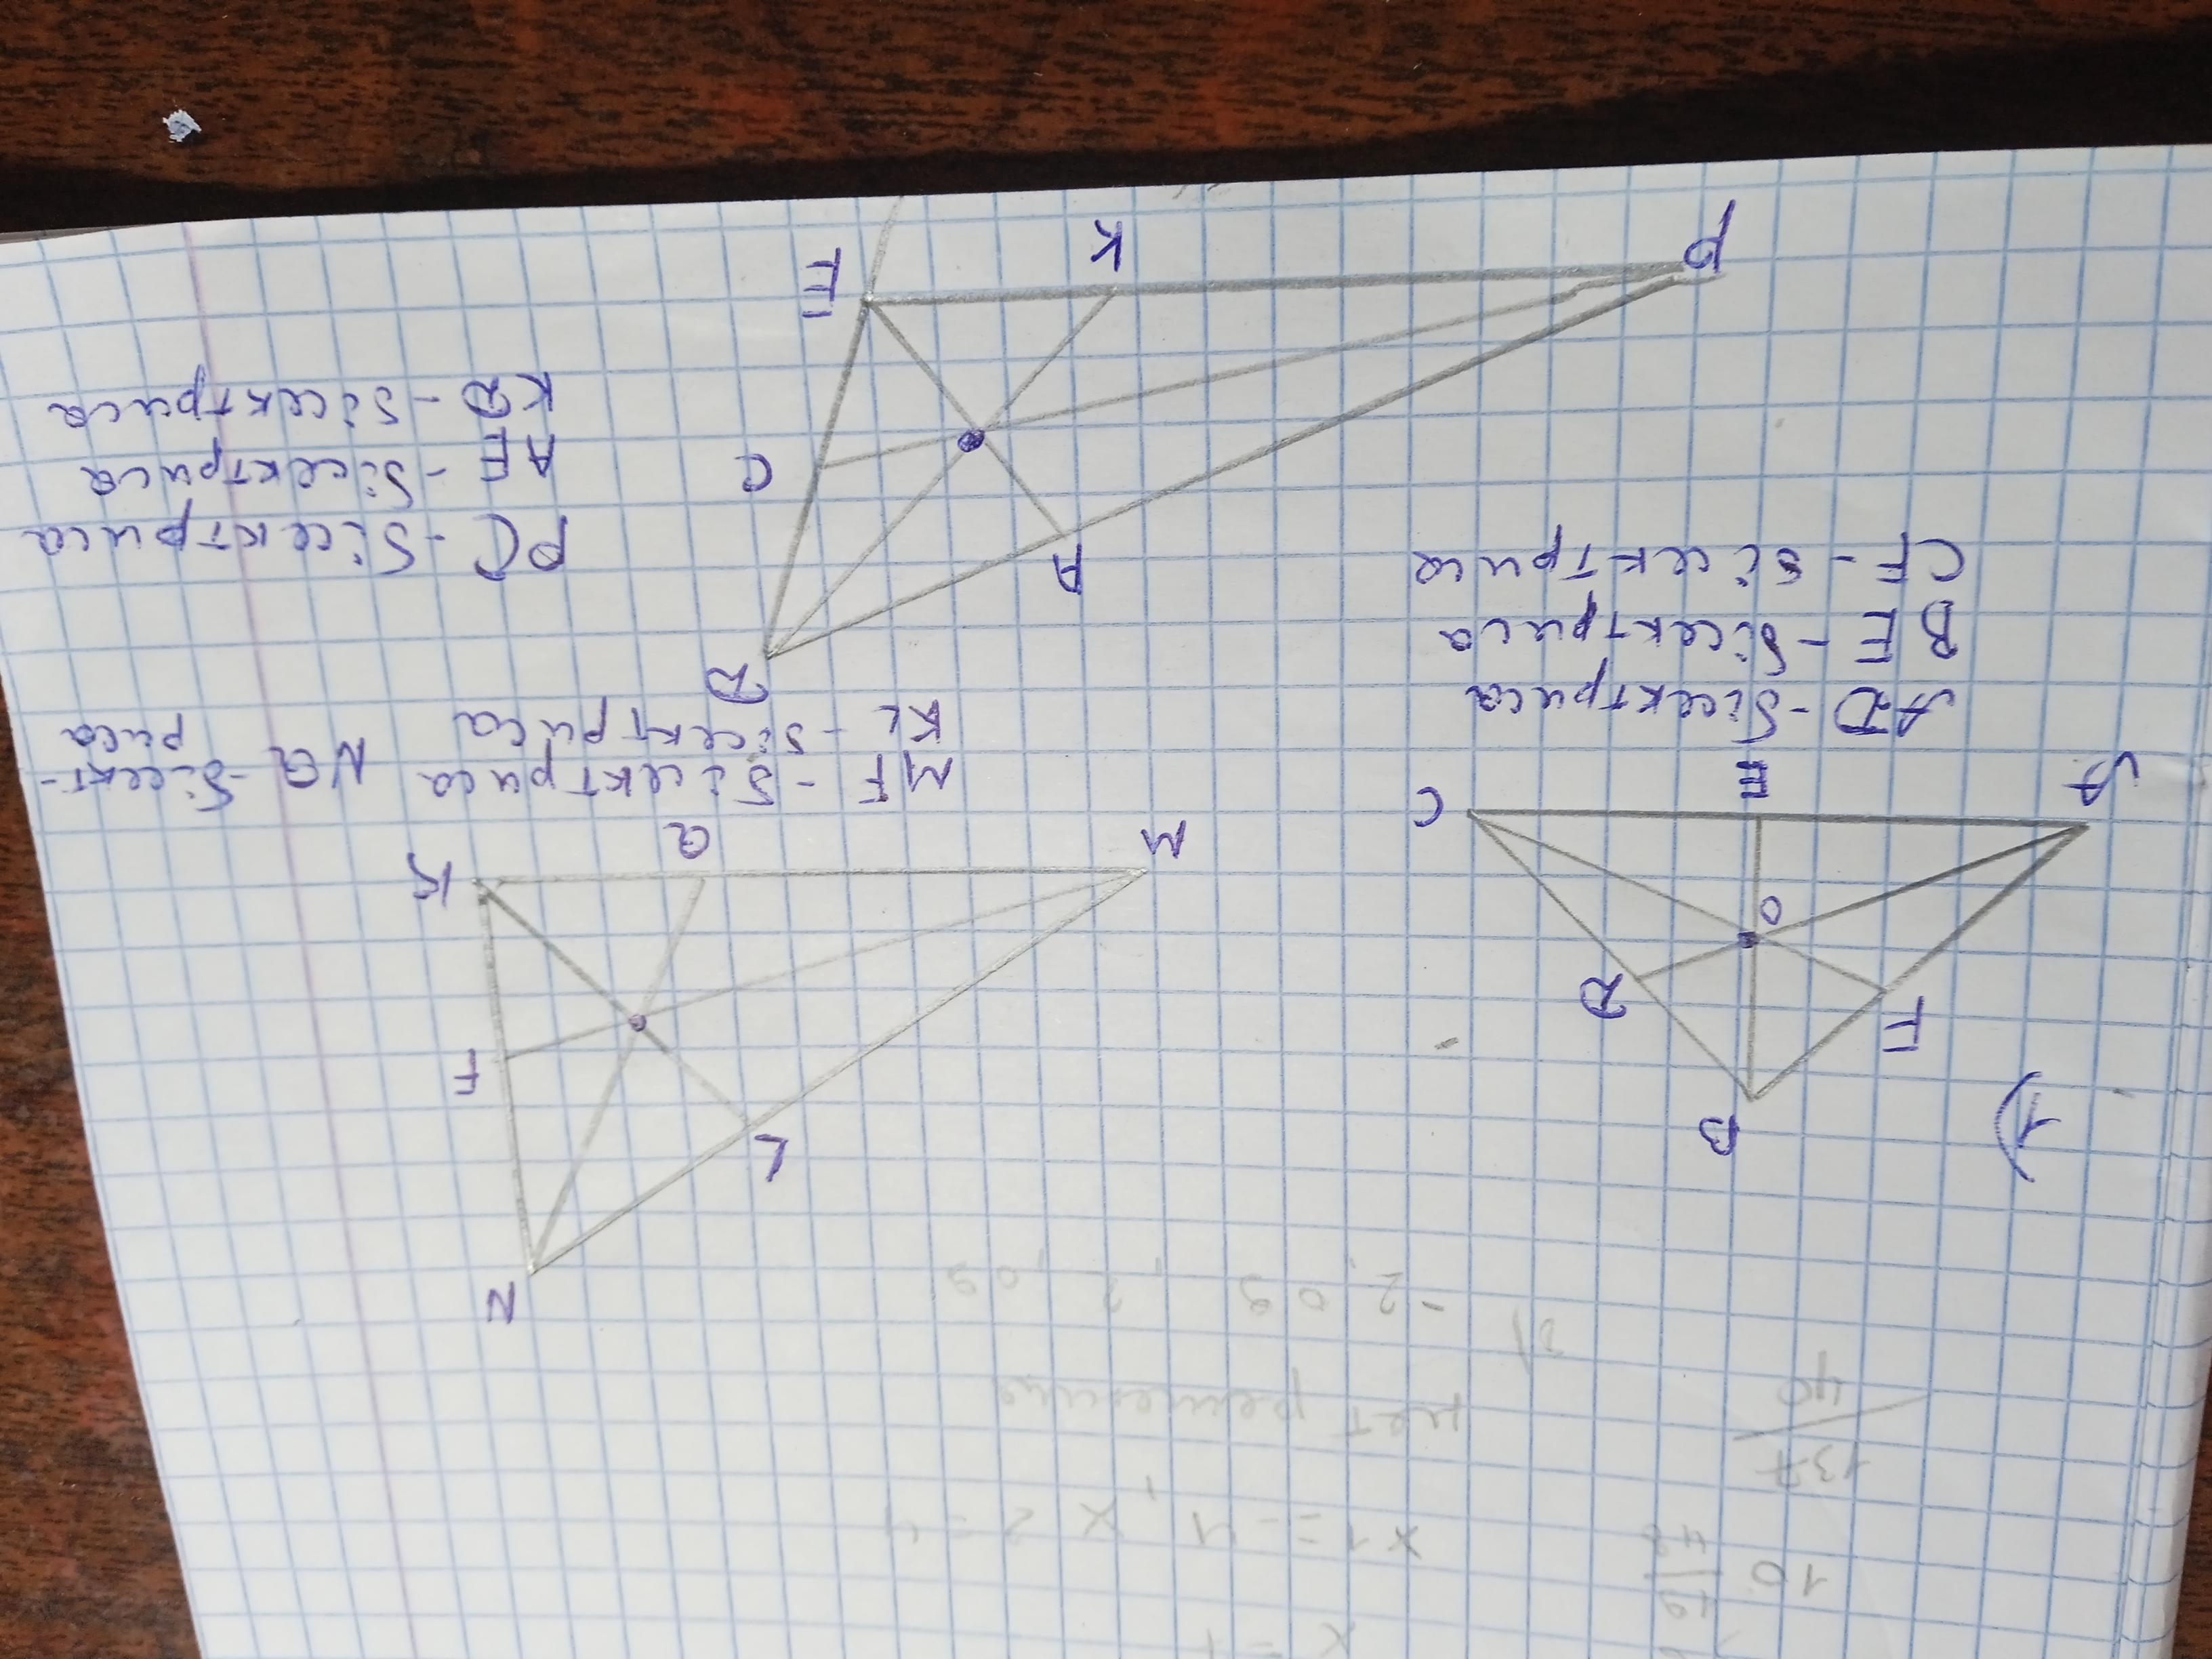 1)
B
F
D
O
A
E
C
AD - бісектриса
BE - бісектриса
CF - бісектриса
N
L
F
M
Q
K
MF - бісектриса
KL - бісектриса
NQ - бісект-
риса
D
A
C
P
K
E
PC - бісектриса
AE - бісектриса
KD - бісектриса